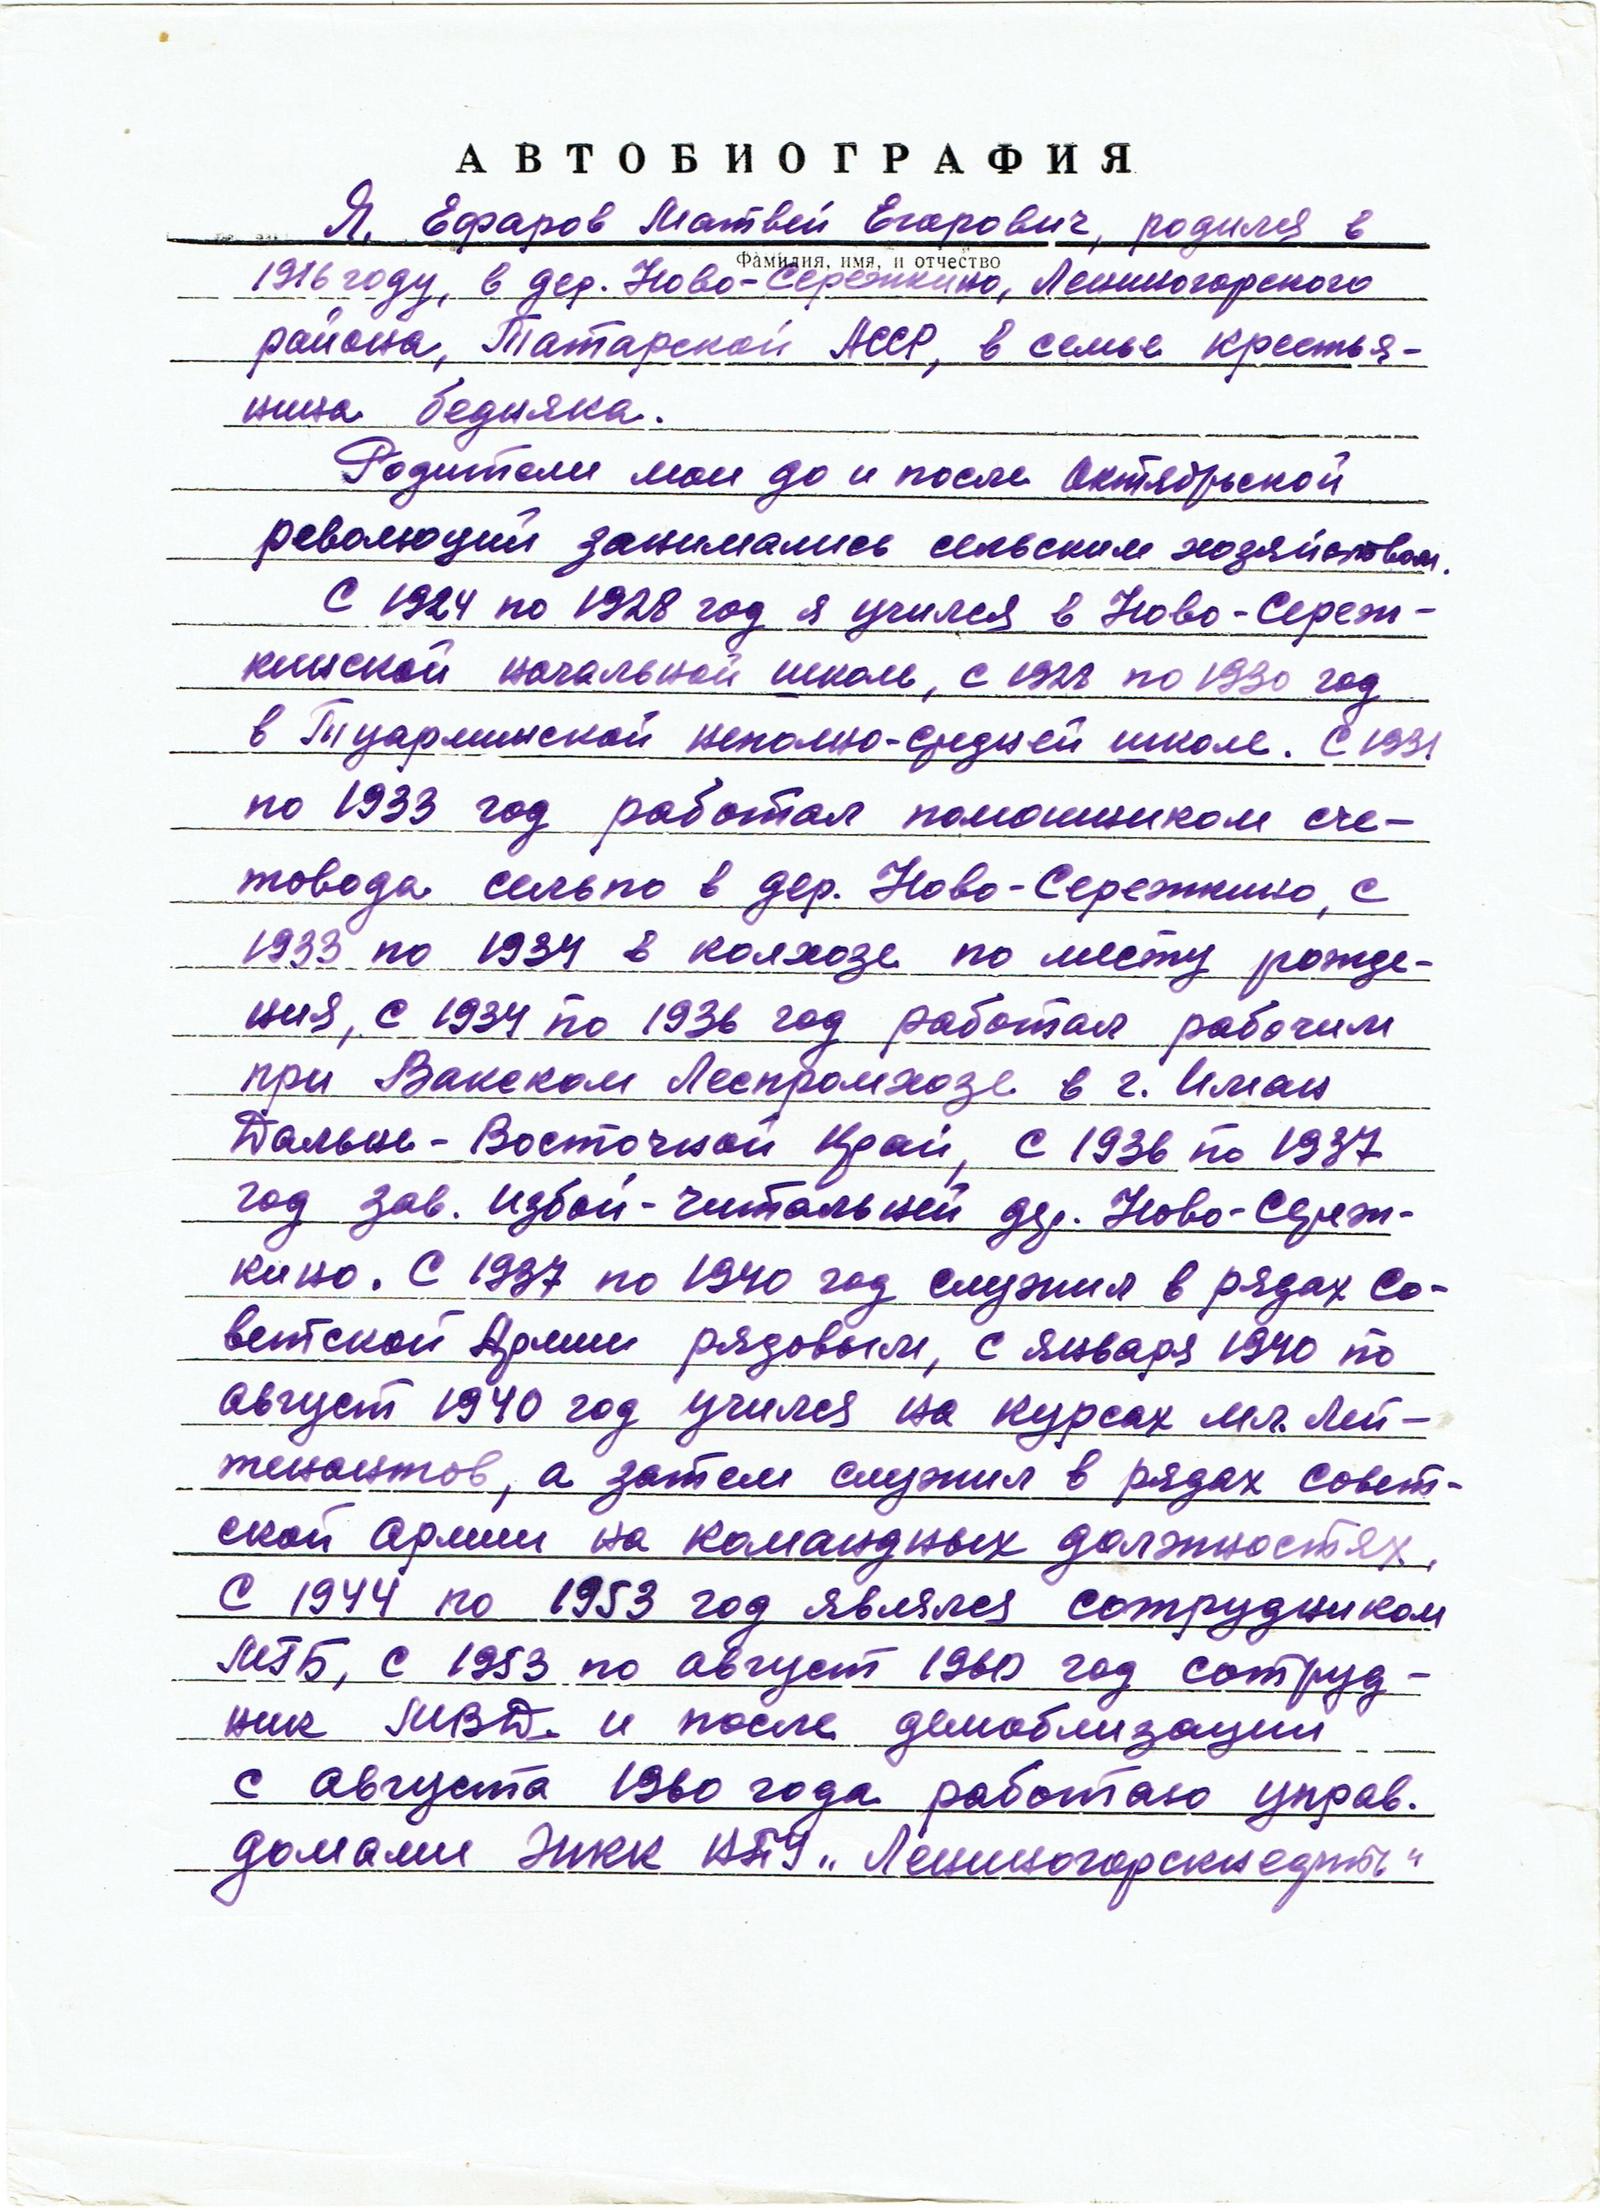 АВТОБИОГРАФИЯ
Я, Ефаров Матвей Егорович, родился в
Фамилия, имя, и отчество
1916 году, в дер. Ново-Сережкино, Лениногорского
района, Татарской АССР, в семье крестья-
нина бедняка.
Родители мои до и после Октябрьской
революций занимались сельским хозяйством.
С 1924 по 1928 год я учился в Ново-Сереж-
кинской начальной школе, с 1928 по 1930 год
в Туарминской неполно-средней школе. С 1931
по 1933 год работал помошником сче-
товода сельпо в дер. Ново-Сережкино, с
1933 по 1934 в колхозе по месту рожде-
ния, с 1934 по 1936 год работал рабочим
при Вакском Леспромхозе в г. Иман
Дальне-Восточной Край, с 1936 по 1937
год зав. избой-читальней дер. Ново-Сереж-
кино. С 1937 по 1940 год служил в рядах Со-
ветской Армии рядовым, с января 1940 по
август 1940 год учился на курсах мл. лей-
тенантов, а затем служил в рядах Совет-
ской Армии на командных должностях.
С 1944 по 1953 год являлся сотрудником
МГБ, с 1953 по август 1960 год сотруд-
ник МВД. и после демоблизации
с августа 1960 года работаю управ.
домами ЖКК НПУ „Лениногорскнефть"